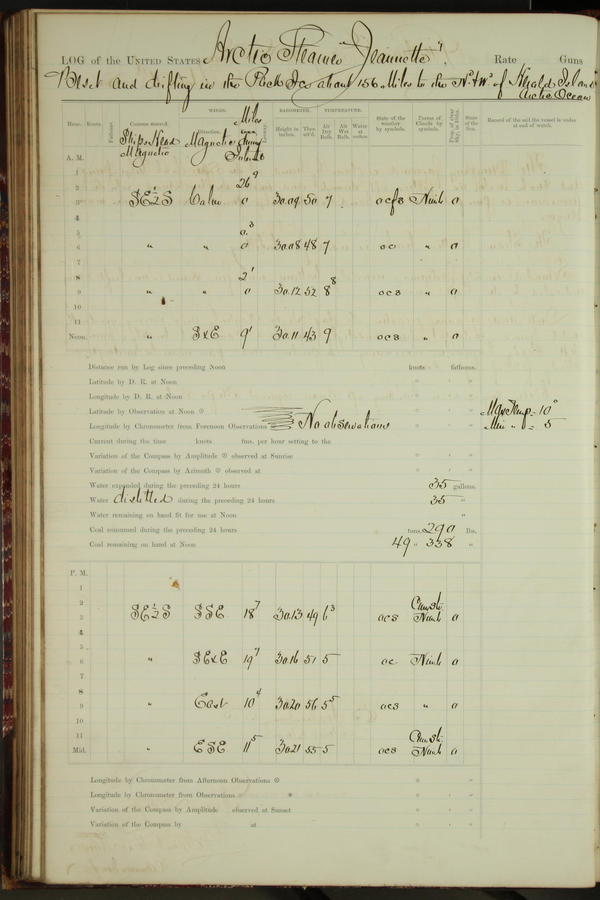 LOG of the UNITED STATES Arctic Steamer "Jeannette". Rate Guns
Beset and drifting in the Pack Ice about 156 Miles to the Nd & Wd of Herald Island
Arctic Ocean
WINDS. BAROMETER. TEMPERATURE.
Hour. Knots. Fathoms. Courses steered. Direction. Force. Leeway. Height in inches. Ther. att'd. Air Dry Bulb. Air Wet Bulb. Water at surface. State of the weather by symbols. Forms of Clouds by symbols. Prop. of clear Sky, in 10ths. State of the Sea. Record of the sail the vessel is under at end of watch.
Ships Head Magnetic Magnetic Miles
A. M.
1
2 26 9
3 SE½S Calm 0 30.09 50 7 ocfs Nimb 0
4
5 0.3
6 " " 0 30.08 48 7 oc " 0
7
8 2 1
9 " " 0 30.12 52 8 8 ocs " 0
10
11
Noon. " SxE 9 1 30.11 43 9 ocs " 0
Distance run by Log since preceding Noon knots fathoms.
Latitude by D. R. at Noon ° ' "
Longitude by D. R. at Noon ° ' "
Latitude by Observation at Noon ☉ ° ' " Max Temp = 10°
Longitude by Chronometer from Forenoon Observations No observations ° ' " Min " = 5
Current during the time knots fms. per hour setting to the
Variation of the Compass by Amplitude ☉ observed at Sunrise ° ' "
Variation of the Compass by Azimuth ☉ observed at ° ' "
Water expended during the preceding 24 hours 35 gallons.
Water distilled during the preceding 24 hours 35 "
Water remaining on hand fit for use at Noon "
Coal consumed during the preceding 24 hours tons, 290 lbs.
Coal remaining on hand at Noon 49 " 338 "
P. M.
1
2 Cum.st.
3 SE½S SSE 18 7 30.13 49 6 3 ocs Nimb 0
4
5
6 " SExE 19 7 30.16 51 5 oc Nimb 0
7
8
9 " East 10 4 30.20 56 5 5 ocs " 0
10
11 Cum.st.
Mid. " ESE 11 5 30.21 55 5 ocs Nimb 0
Longitude by Chronometer from Afternoon Observations ☉ ° ' "
Longitude by Chronometer from Observations * ° ' "
Variation of the Compass by Amplitude observed at Sunset ° ' "
Variation of the Compass by at ° ' "